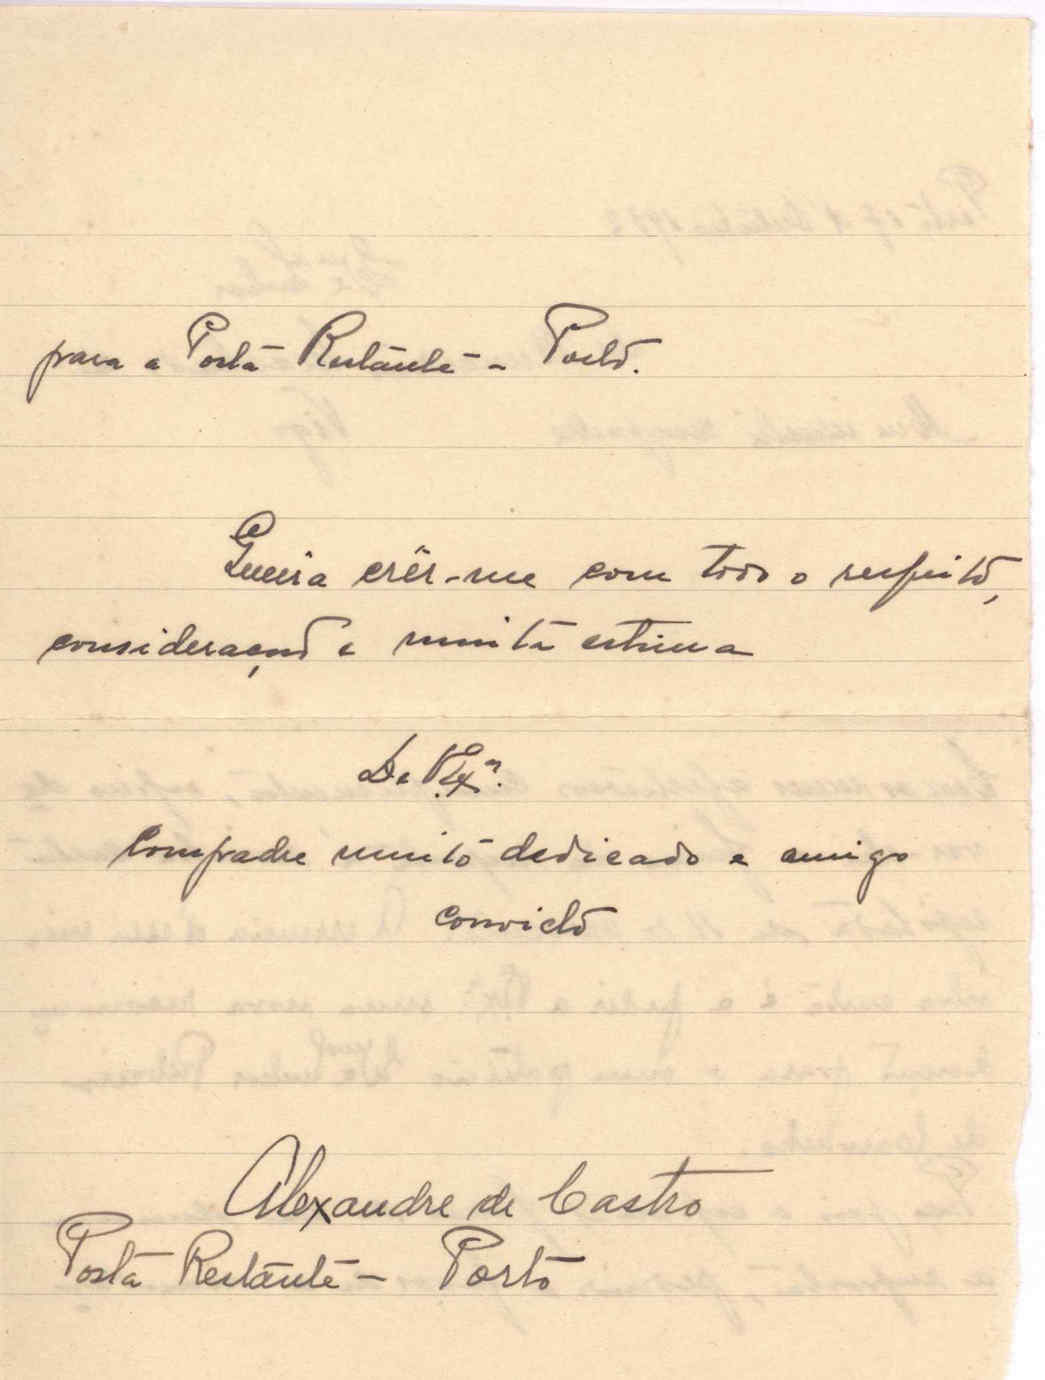 para a Posta Restante - Porto.
Queira crêr-me com todo o respeito,
consideração e muita estima
De V. Exª.
Compadre muito dedicado e amigo
convicto
Alexandre de Castro
Posta Restante - Porto